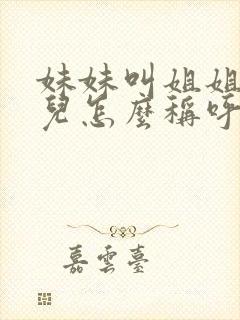 妹妹叫姐姐
兒怎麼稱呼
嘉雲臺